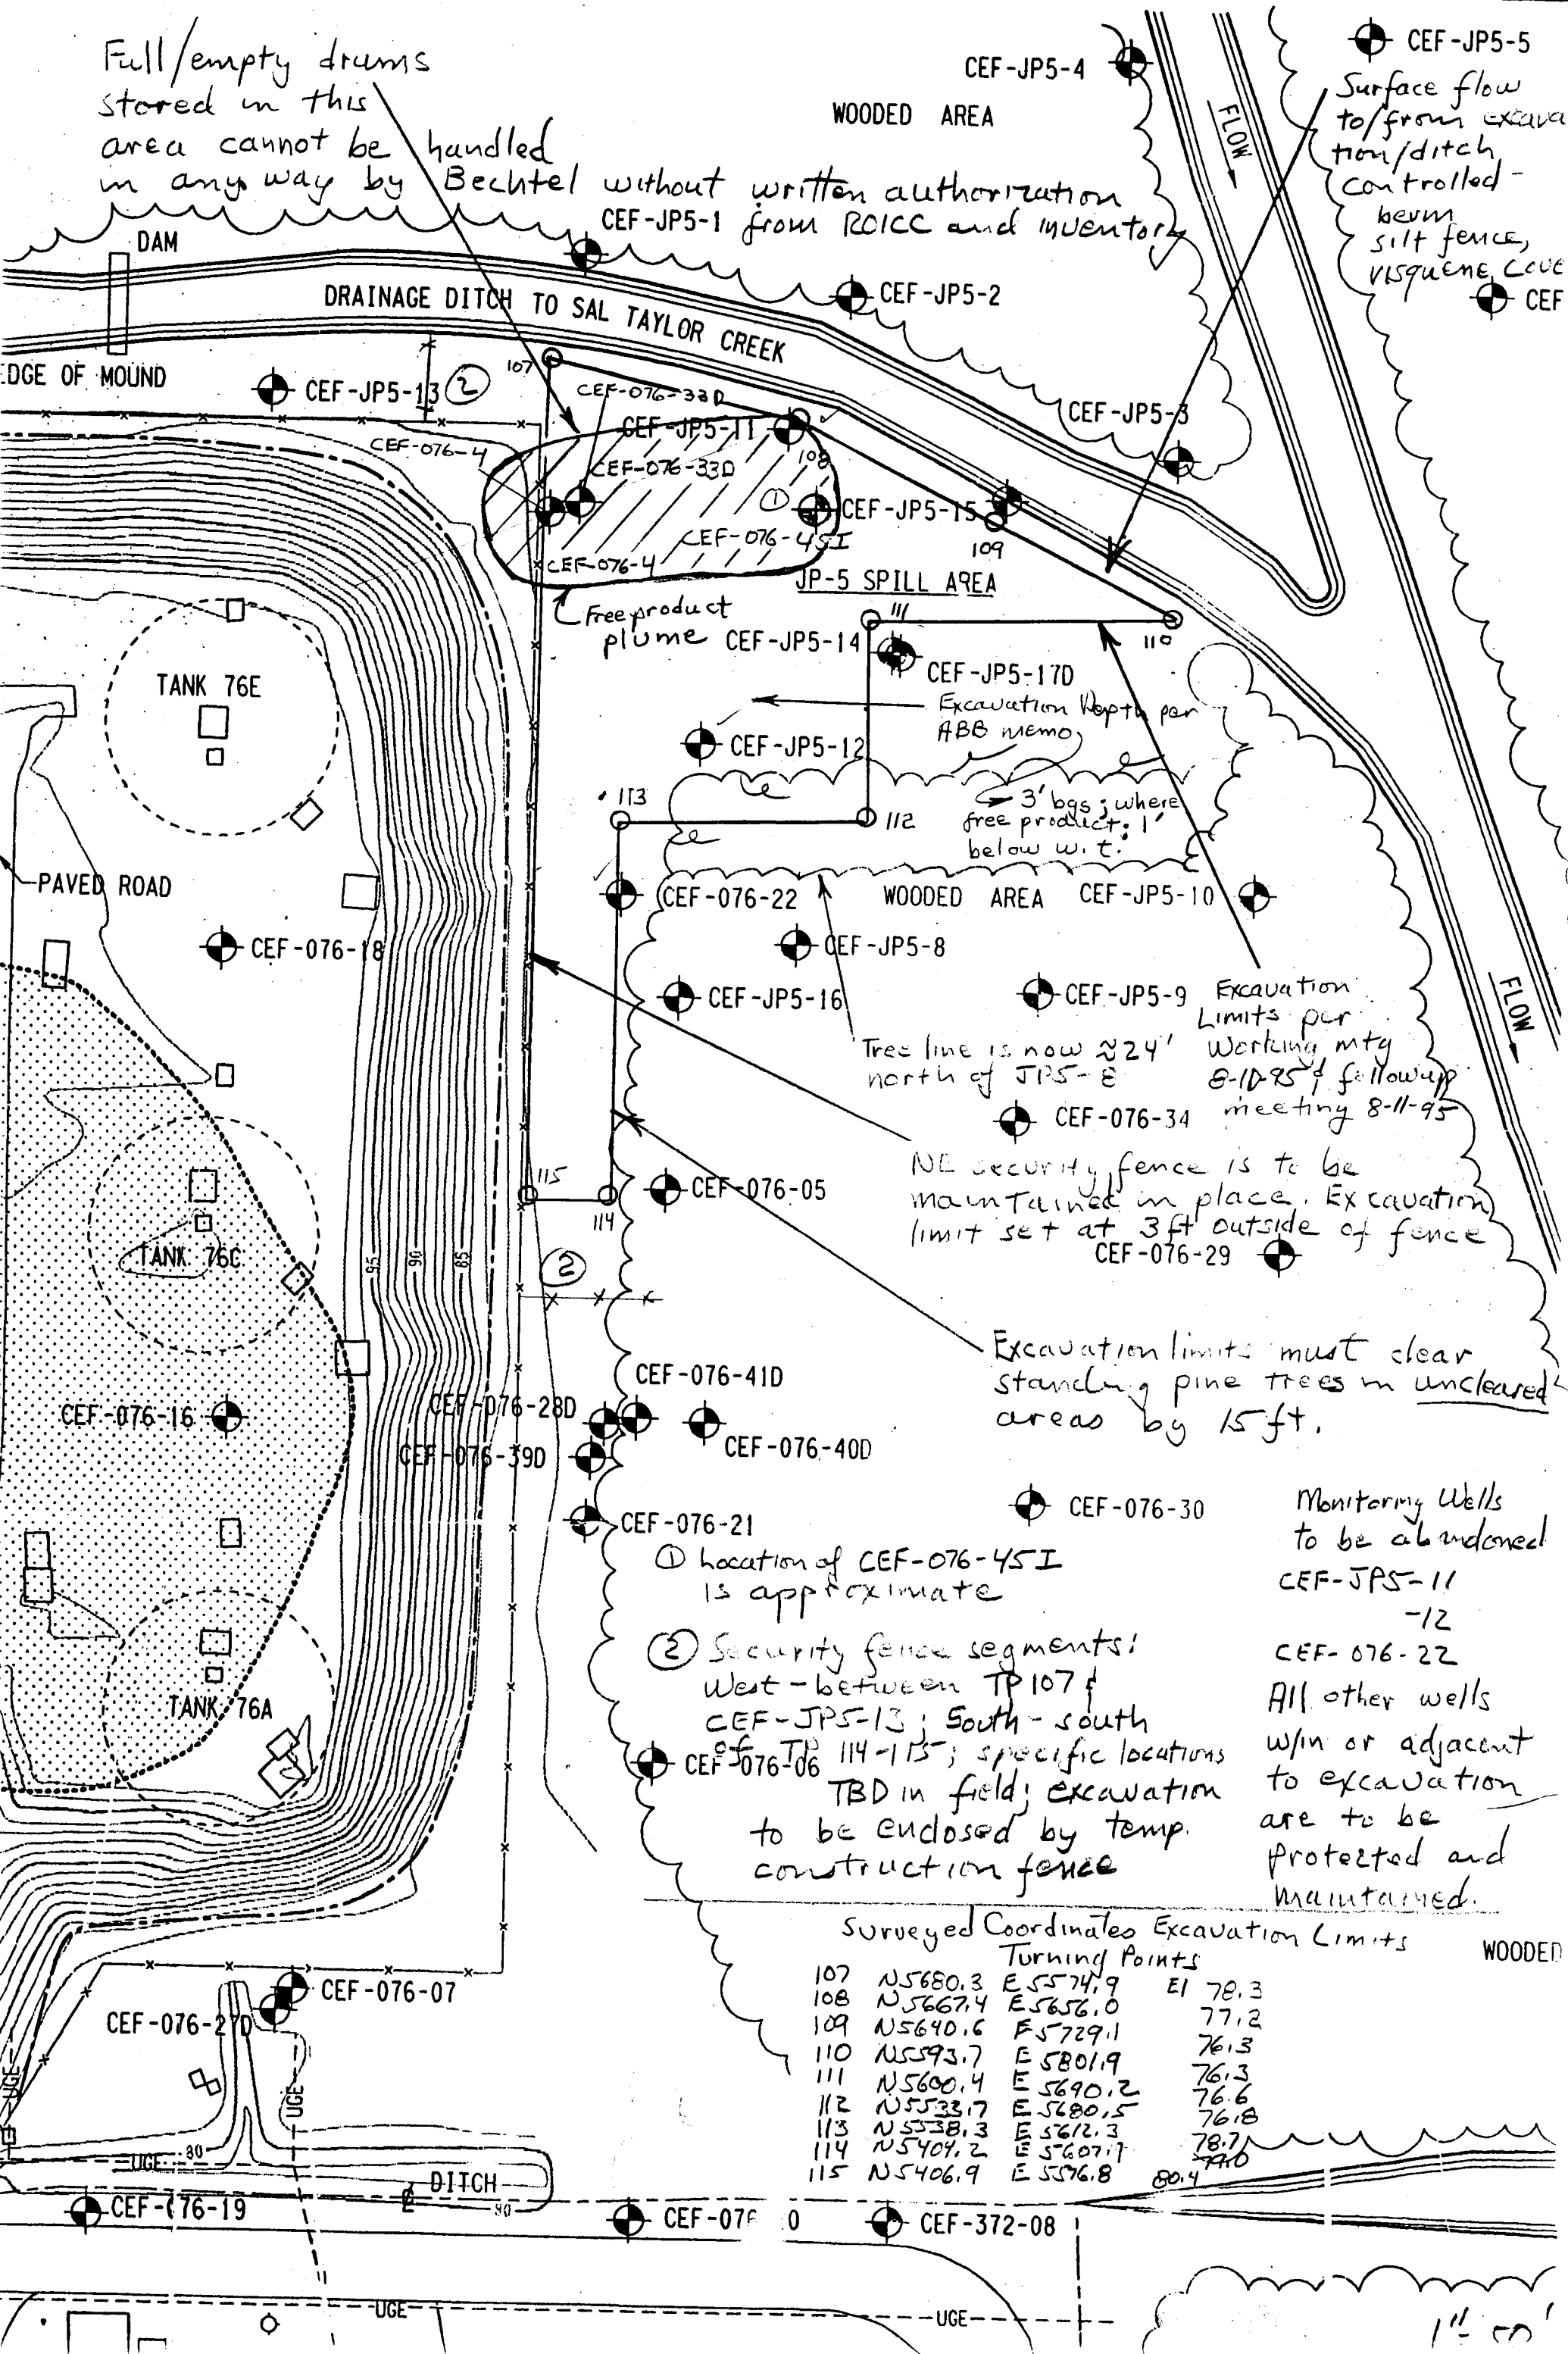 Full/empty drums
stored in this
area cannot be handled
in any way by Bechtel without written authorization
from ROICC and inventory
CEF-JP5-4
CEF-JP5-5
WOODED AREA
FLOW
Surface flow
to/from excava
tion/ditch
controlled -
berm
silt fence,
visquene cove
CEF
CEF-JP5-1
DAM
CEF-JP5-2
DRAINAGE DITCH TO SAL TAYLOR CREEK
EDGE OF MOUND
CEF-JP5-13
②
107
CEF-076-33D
CEF-JP5-3
CEF-JP5-11
CEF-076-4
108
CEF-076-33D
①
CEF-JP5-15
CEF-076-45I
109
CEF-076-4
JP-5 SPILL AREA
Free product
plume
111
110
CEF-JP5-14
CEF-JP5-17D
TANK 76E
Excavation Depth per
ABB memo,
CEF-JP5-12
3' bgs; where
free product: 1'
below w.t.
113
112
PAVED ROAD
CEF-076-22
WOODED AREA
CEF-JP5-10
CEF-076-18
CEF-JP5-8
CEF-JP5-16
CEF-JP5-9
FLOW
Excavation
Limits per
Working mtg
8-10-95 & followup
meeting 8-11-95
Tree line is now ≈24'
north of JP5-8
CEF-076-34
NE security fence is to be
maintained in place. Excavation
limit set at 3 ft outside of fence
115
114
CEF-076-05
CEF-076-29
TANK 76C
95
90
85
②
Excavation limits must clear
standing pine trees in uncleared
areas by 15 ft.
CEF-076-41D
CEF-076-28D
CEF-076-16
CEF-076-40D
CEF-076-39D
CEF-076-30
CEF-076-21
Monitoring Wells
to be abandoned
CEF-JP5-11
-12
CEF-076-22
All other wells
w/in or adjacent
to excavation
are to be
protected and
maintained.
① Location of CEF-076-45I
is approximate
② Security fence segments:
West - between TP 107 &
CEF-JP5-13; South - south
of TP 114-115; specific locations
TBD in field; excavation
to be enclosed by temp.
construction fence
TANK 76A
CEF-076-06
Surveyed Coordinates Excavation Limits
Turning Points
107 N5680.3 E5574.9 El 78.3
108 N5667.4 E5656.0 77.2
109 N5640.6 E5729.1 76.3
110 N5593.7 E5801.9 76.3
111 N5600.4 E5690.2 76.6
112 N5533.7 E5680.5 76.8
113 N5538.3 E5612.3 78.7
114 N5404.2 E5607.7 79.0
115 N5406.9 E5576.8 80.4
WOODED
CEF-076-07
CEF-076-27D
UGE
UGE
UGE
80
DITCH
80
CEF-076-19
CEF-076 0
CEF-372-08
UGE
UGE